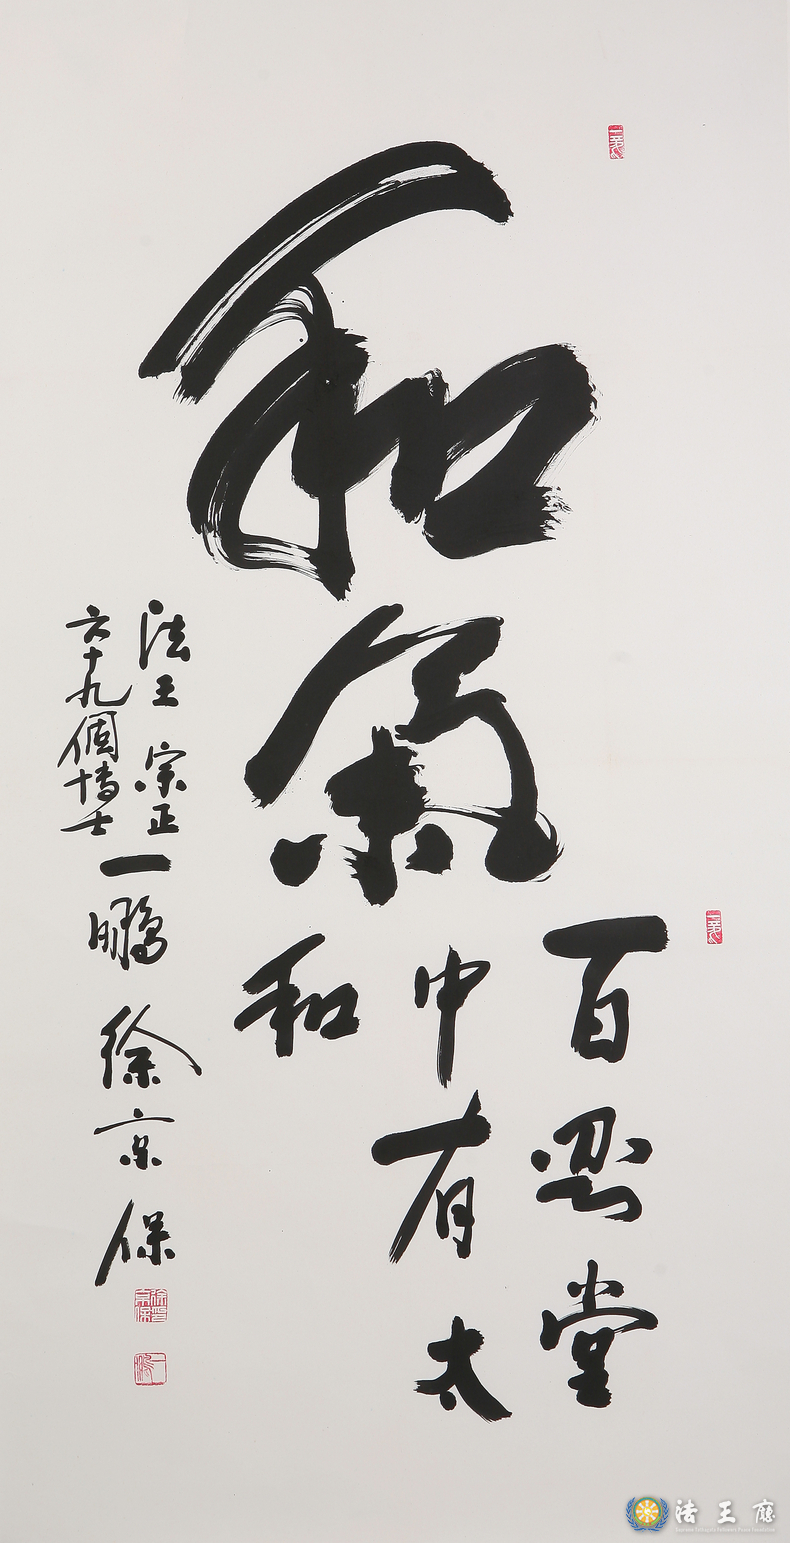 和氣
百忍堂
中有太
和
法王 宗正
六十九個博士
一鵬 徐京保
法王廳